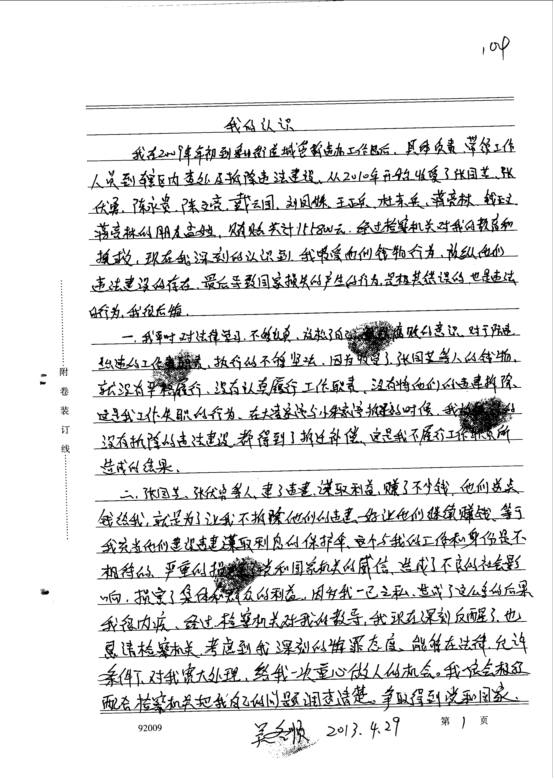 104
我的认识
我在2009年年初到 街道城管拆违办工作以后，具体负责带领工作
人员到辖区内查处及拆除违法建设。从2010年开始收受了张国芝、张
伏勇、陈永贵、陈文亮、戴云国、刘国继、王正兵、杜东兵、蒋荣林、钱正文
蒋荣林的朋友孟姓，贿赂共计155800元。经过检察机关对我的教育和
挽救，现在我深刻的认识到我收受他们钱物行为，放纵他们
违法建设的存在，最后导致国家损失的产生的行为，是极其错误的也是违法
的行为，我很后悔。
一、我平时对法律学习不够认真，放松了自 腐败的意识，对于防违
纠违的工作职责，执行的不够坚决，因为收受了张国芝等人的钱物，
就没有严格履行，没有认真履行工作职责，没有将他们的违建拆除，
这是我工作失职的行为，在大 与小 拆迁的时候，我 的
没有拆除的违法建设，都得到了拆迁补偿，这是我不履行工作职责所
造成的结果。
二、张国芝、张伏勇等人，建了违建，谋取利益，赚了不少钱，他们送点
钱给我，就是为了让我不拆除他们的违建，好让他们继续赚钱，等于
我充当他们建设违建谋取利息的保护伞，这个与我的工作和身份是不
相符的，严重的损害了党和国家机关的威信，造成了不良的社会影
响，损害了集体和群众的利益，因为我一己之私，造成了这么多的后果
我很内疚，经过检察机关对我的教导，我现在深刻反醒了，也
恳请检察机关，考虑到我深刻的悔罪态度，能够在法律允许
条件下，对我宽大处理，给我一次重心做人的机会。我一定会积极
配合检察机关把我自己的问题调查清楚。争取得到党和国家、
附卷装订线
92009
2013.4.29
第1页